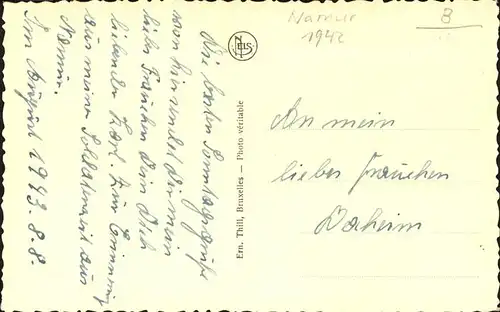 Die besten Sonntagsgrüße
von hier sendet dir mein
liebs Frauchen Dein Dich
liebender Karl. Zur Erinnerung
aus meiner Soldatenzeit aus
Namur.
Im August 1943. 8.8.
NELS
Ern. Thill, Bruxelles — Photo véritable
Namur
1942
B
An mein
liebes Frauchen
Daheim